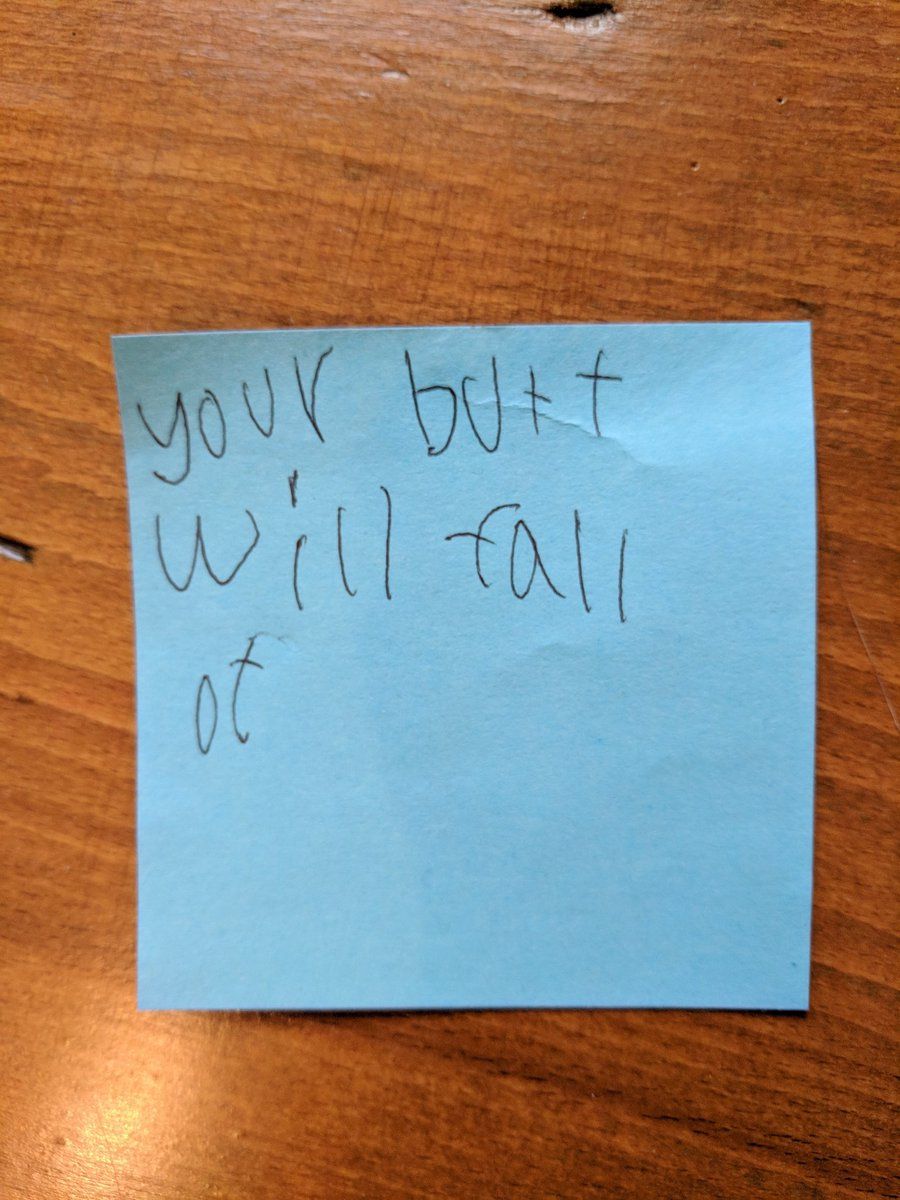 your butt
will fall
of